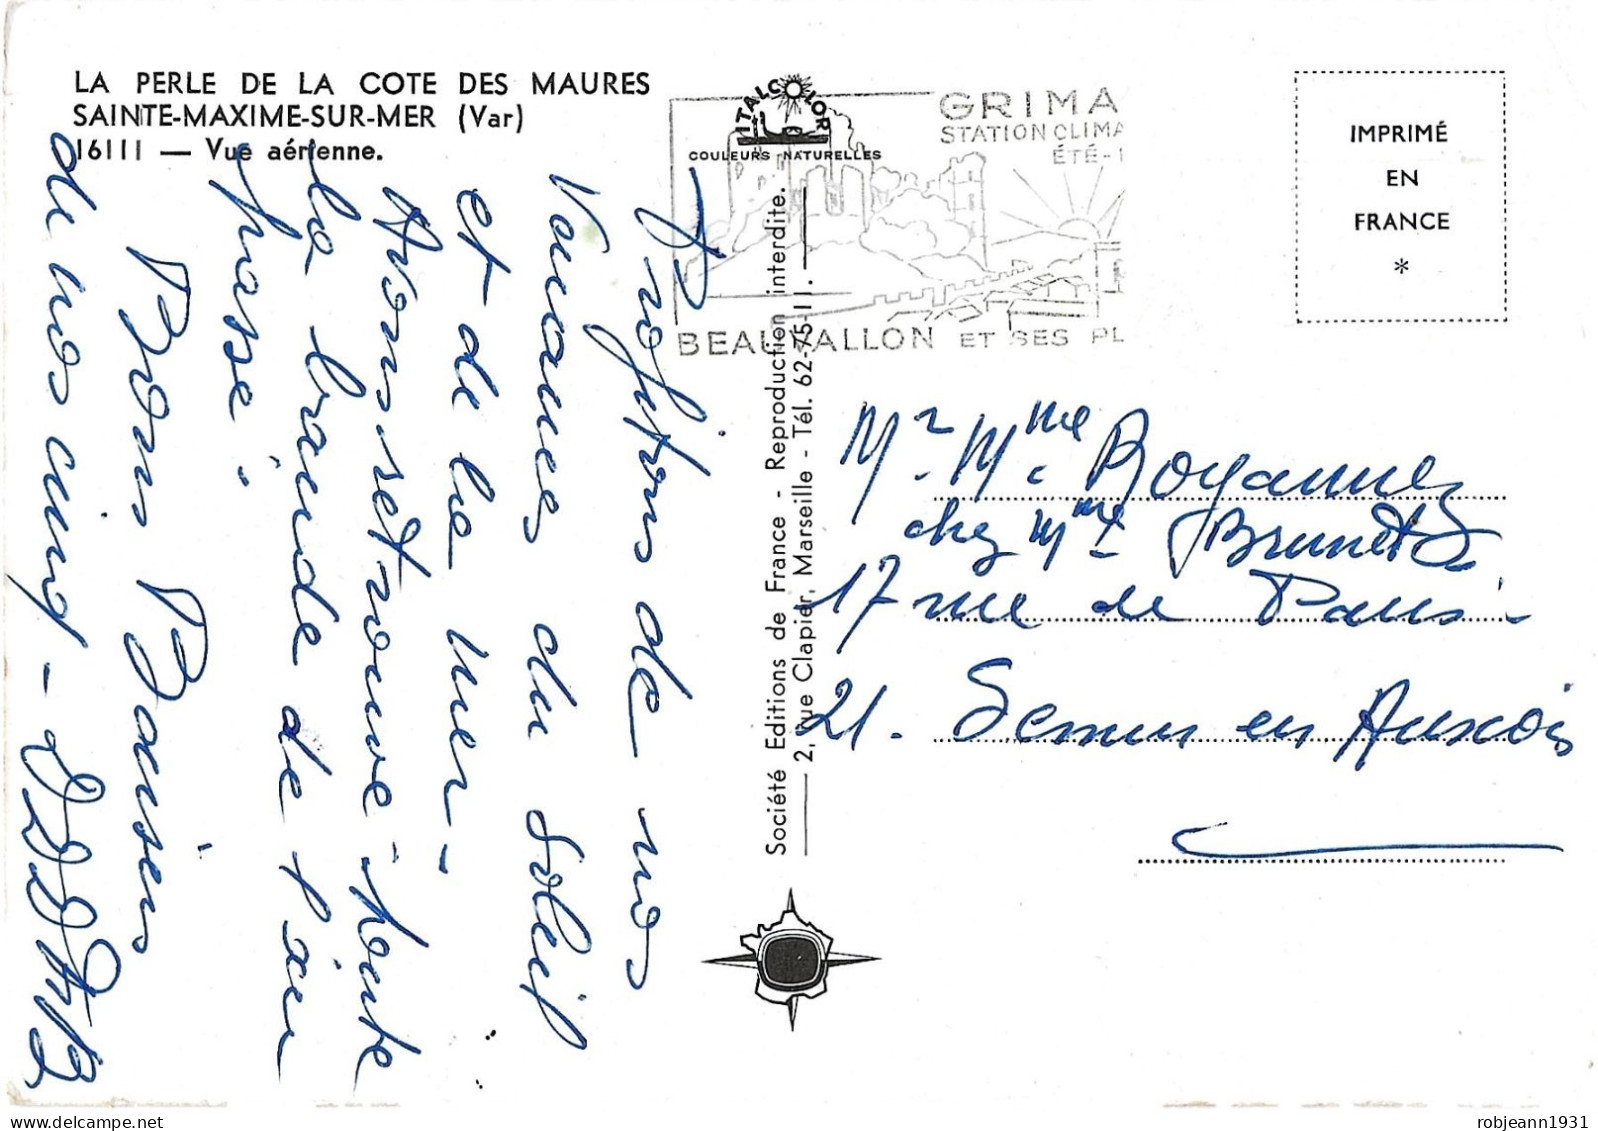 LA PERLE DE LA COTE DES MAURES
SAINTE-MAXIME-SUR-MER (Var)
16111 — Vue aérienne.
ITALCOLOR
COULEURS NATURELLES
GRIMA
STATION CLIMA
ÉTÉ-
BEAUVALLON ET SES PL
IMPRIMÉ
EN
FRANCE
*
Profitons de nos
Vacances du Soleil
et de la mer -
Avons retrouvé toute
la bande de l'an
passé -
Bons Baisers
de nous cinq -
Société Editions de France - Reproduction interdite.
2, rue Clapier, Marseille - Tél. 62-75-11.
Mr Mme Royannez
chez Mme Brunet
17 rue de Paris
21. Semur en Auxois
robjeann1931